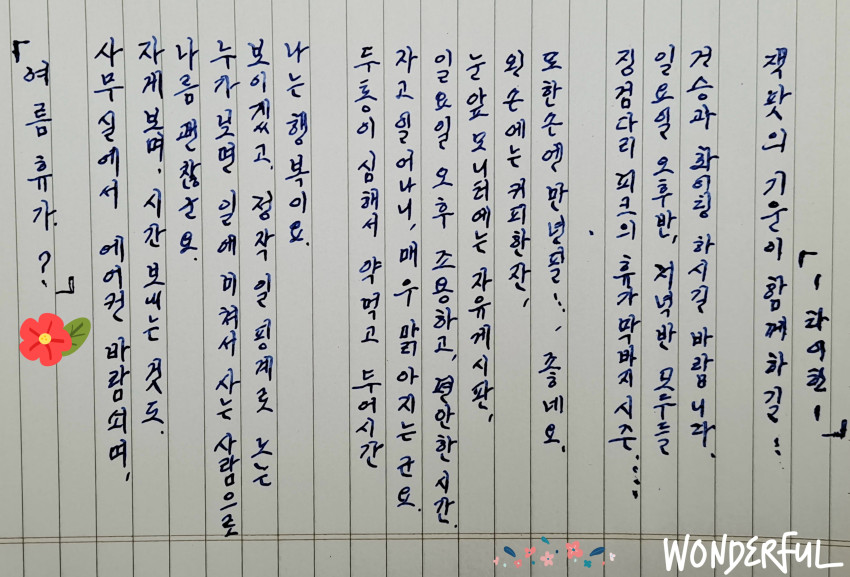 『여름 휴가.?』
사무실에서 에어컨 바람쐬며,
자게보며, 시간 보내는 것도.
나름 괜찮군요.
누가보면 일에 미쳐서 사는 사람으로
보이겠고, 정작 일 핑계로 노는
나는 행복이요.
두통이 심해서 약먹고 두어시간
자고일어나니, 매우 맑아지는군요.
일요일 오후 조용하고, 편안한 시간.
눈앞 모니터에는 자유게시판,
왼손에는 커피한잔,
또한손엔 만년필!., 좋네요.
징검다리 피크의 휴가막바지시즌.!!!
일요일 오후반, 저녁반 모두들
건승과 화이팅 하시길 바랍니다.
잭팟의 기운이 함께하길!!
『-타이한-』
WONDERFUL